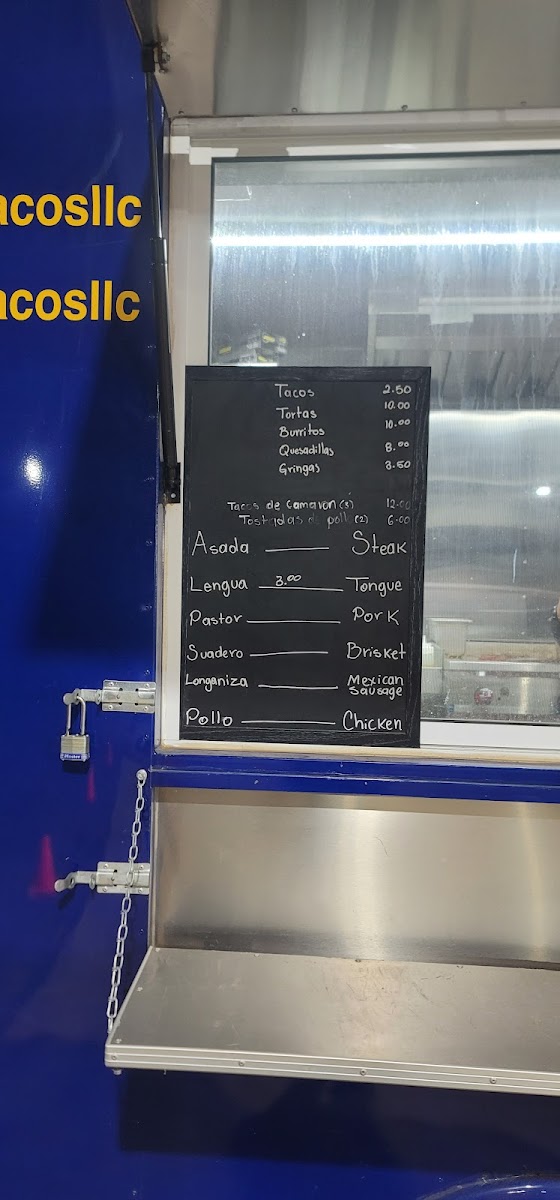 acosllc
acosllc
Tacos 2.50
Tortas 10.00
Burritos 10.00
Quesadillas 8.00
Gringas 3.50
Tacos de Camaron (3) 12.00
Tostadas de pollo (2) 6.00
Asada Steak
Lengua 3.00 Tongue
Pastor Pork
Suadero Brisket
Longaniza Mexican
Sausage
Pollo Chicken
Master